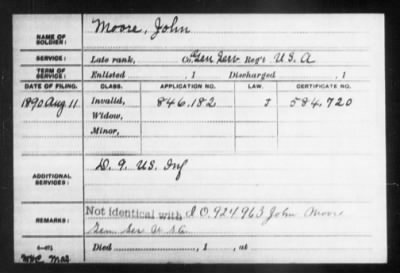 NAME OF SOLDIER: Moore, John
SERVICE: Late rank, Co. Gen Serv Reg't U.S.A
TERM OF SERVICE: Enlisted , 1 Discharged , 1
DATE OF FILING. CLASS. APPLICATION NO. LAW. CERTIFICATE NO.
1890 Aug 11 Invalid, 846.182 J 584.720
Widow,
Minor,
ADDITIONAL SERVICES: D. 9. US. Inf
REMARKS: Not identical with I O. 924963 John Moore
Gen Ser U.S.A.
Died , 1 , at